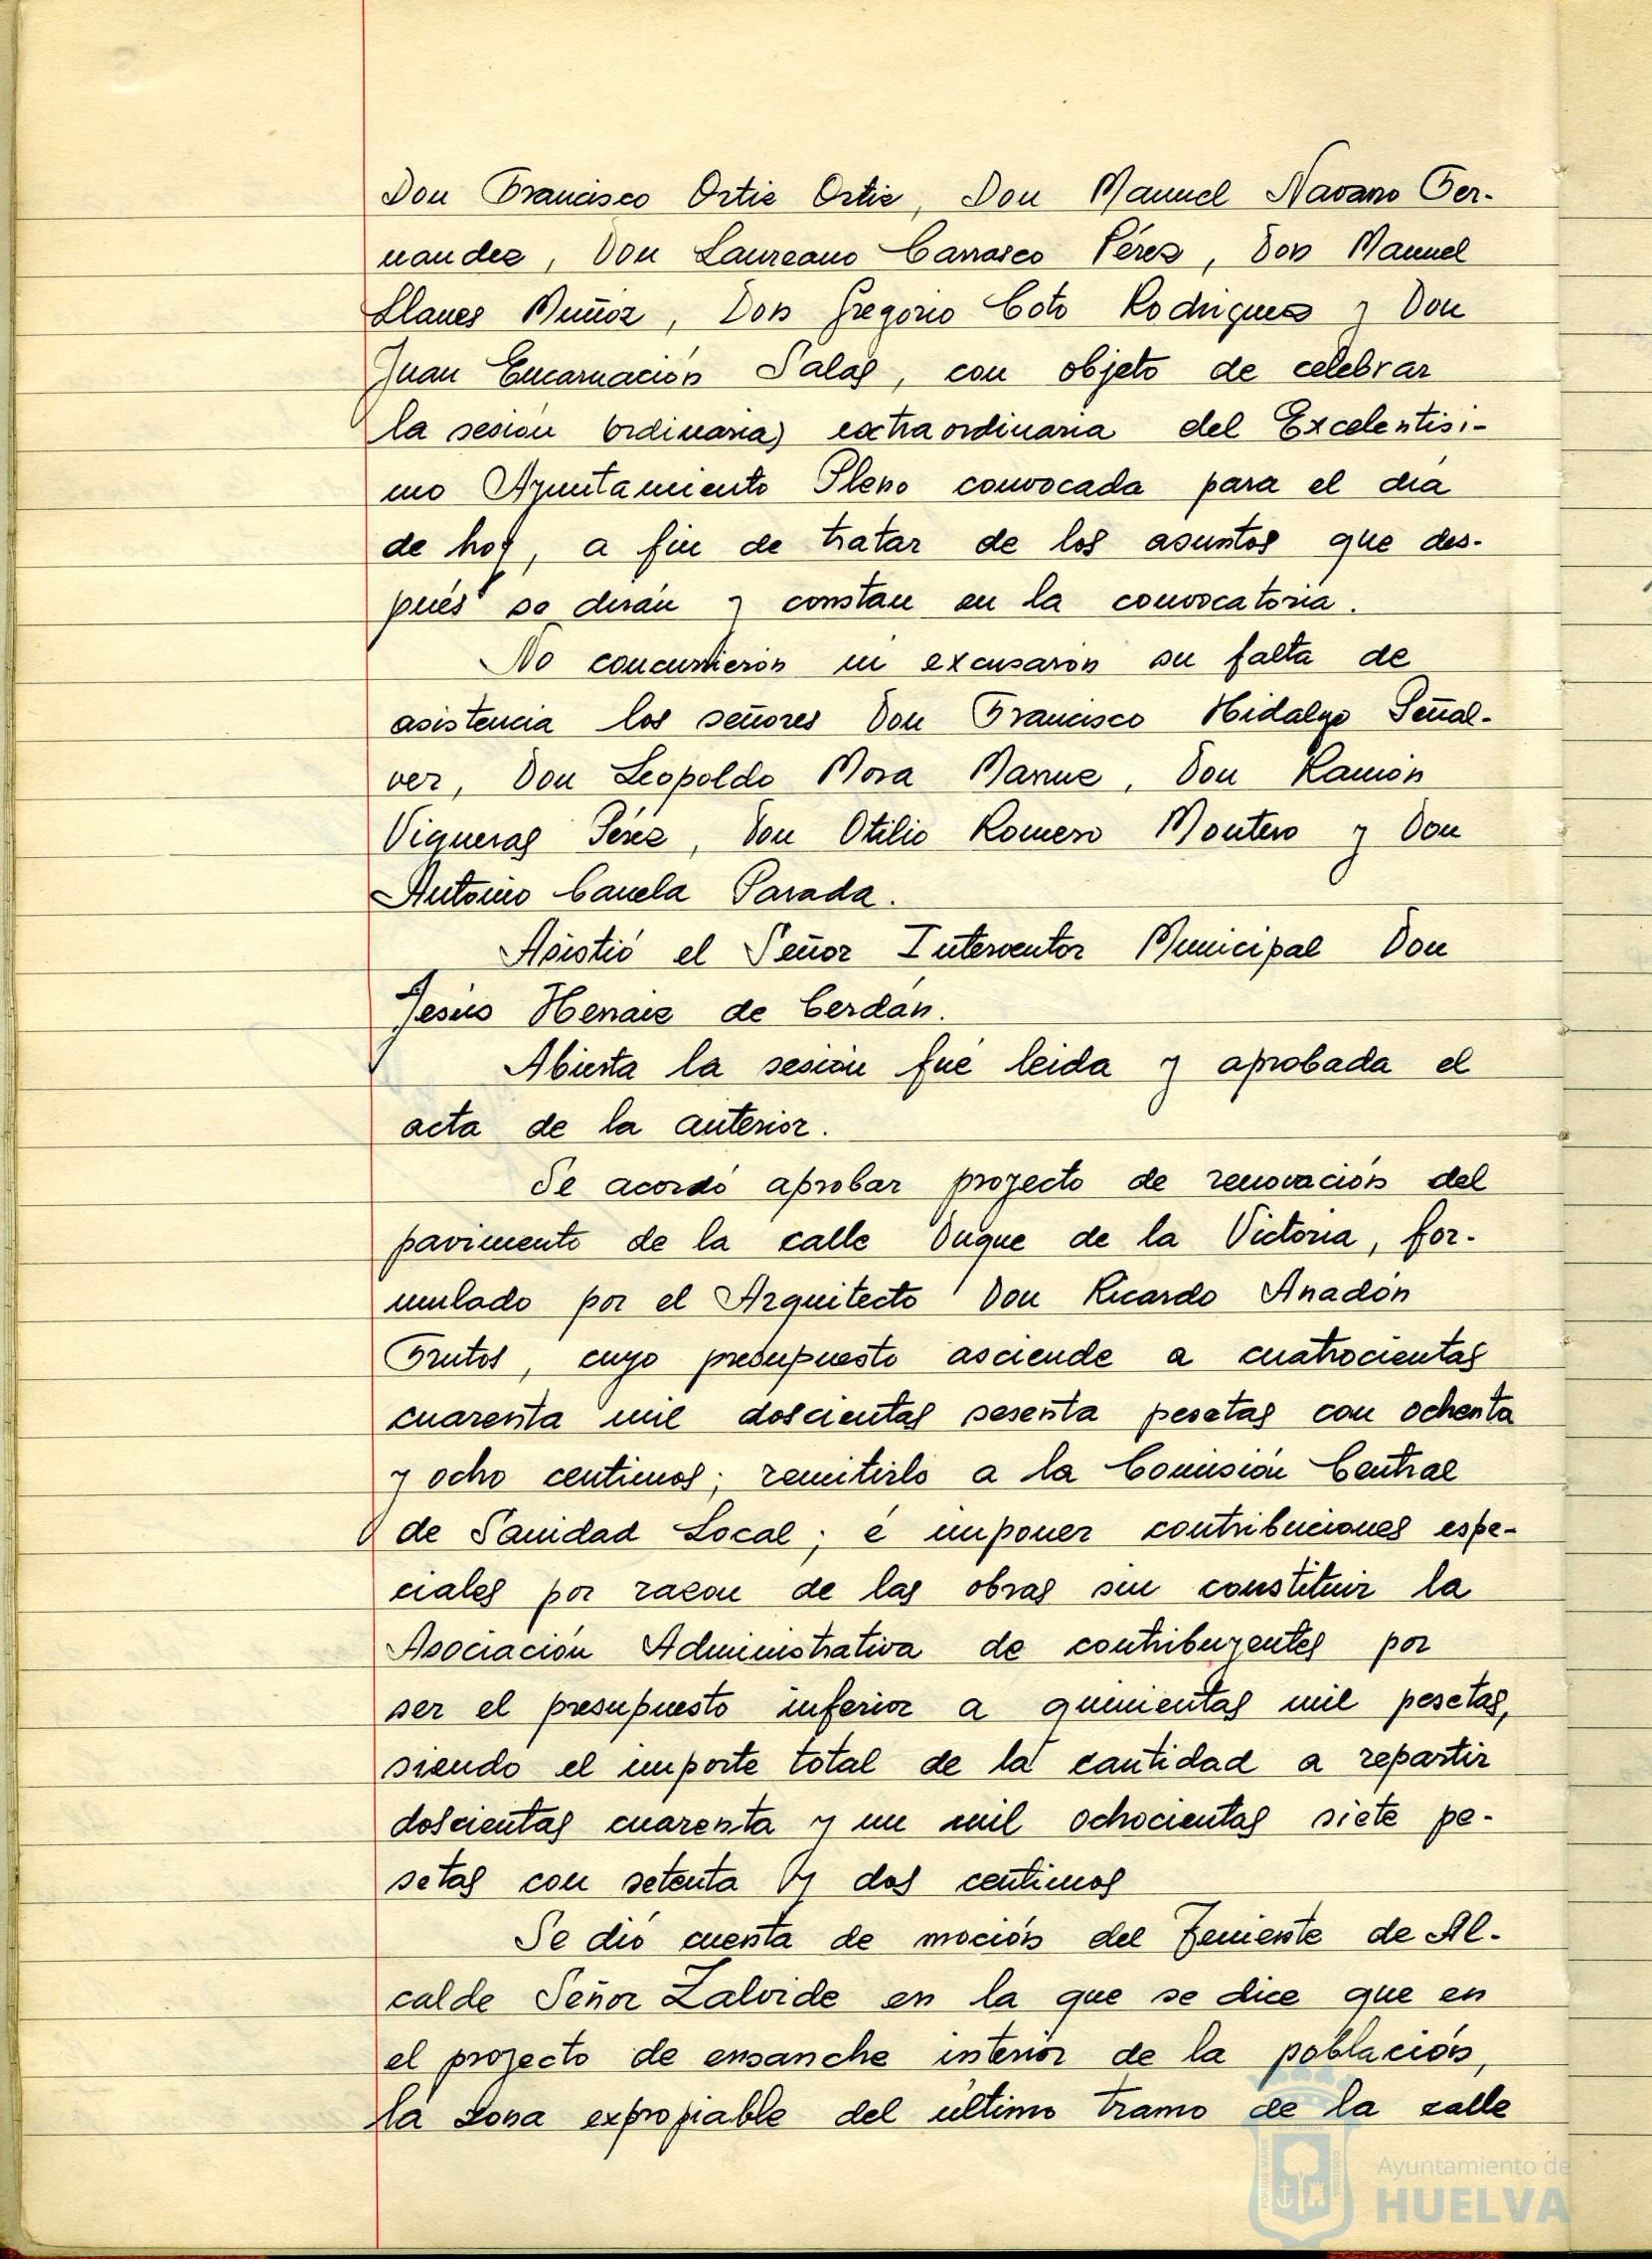 Don Francisco Ortiz Ortiz, Don Manuel Navarro Fer-
nandez, Don Laureano Carrasco Pérez, Don Manuel
Llanes Muñoz, Don Gregorio Coto Rodriguez y Don
Juan Encarnación Salas, con objeto de celebrar
la sesión (ordinaria) extraordinaria del Excelentísi-
mo Ayuntamiento Pleno convocada para el día
de hoy, a fin de tratar de los asuntos que des-
pués se dirán y constan en la convocatoria.
No concurrieron ni excusaron su falta de
asistencia los señores Don Francisco Hidalgo Peñal-
ver, Don Leopoldo Mora Don Ramón
Vigueras Pérez, Don Otilio Romero Montero y Don
Antonio Canela Parada.
Asistió el Señor Interventor Municipal Don
Jesús Henaiz de Cerdán.
Abierta la sesión fué leida y aprobada el
acta de la anterior.
Se acordó aprobar proyecto de renovación del
pavimento de la calle Duque de la Victoria, for-
mulado por el Arquitecto Don Ricardo Anadón
Frutos, cuyo presupuesto asciende a cuatrocientas
cuarenta mil doscientas sesenta pesetas con ochenta
y ocho centimos; remitirlo a la Comisión Central
de Sanidad Local; é imponer contribuciones espe-
ciales por razon de las obras sin constituir la
Asociación Administrativa de contribuyentes por
ser el presupuesto inferior a quinientas mil pesetas,
siendo el importe total de la cantidad a repartir
doscientas cuarenta y un mil ochocientas siete pe-
setas con setenta y dos centimos
Se dió cuenta de moción del Teniente de Al-
calde Señor Zalvide en la que se dice que en
el proyecto de ensanche interior de la población,
la zona expropiable del último tramo de la calle
Ayuntamiento de
HUELVA